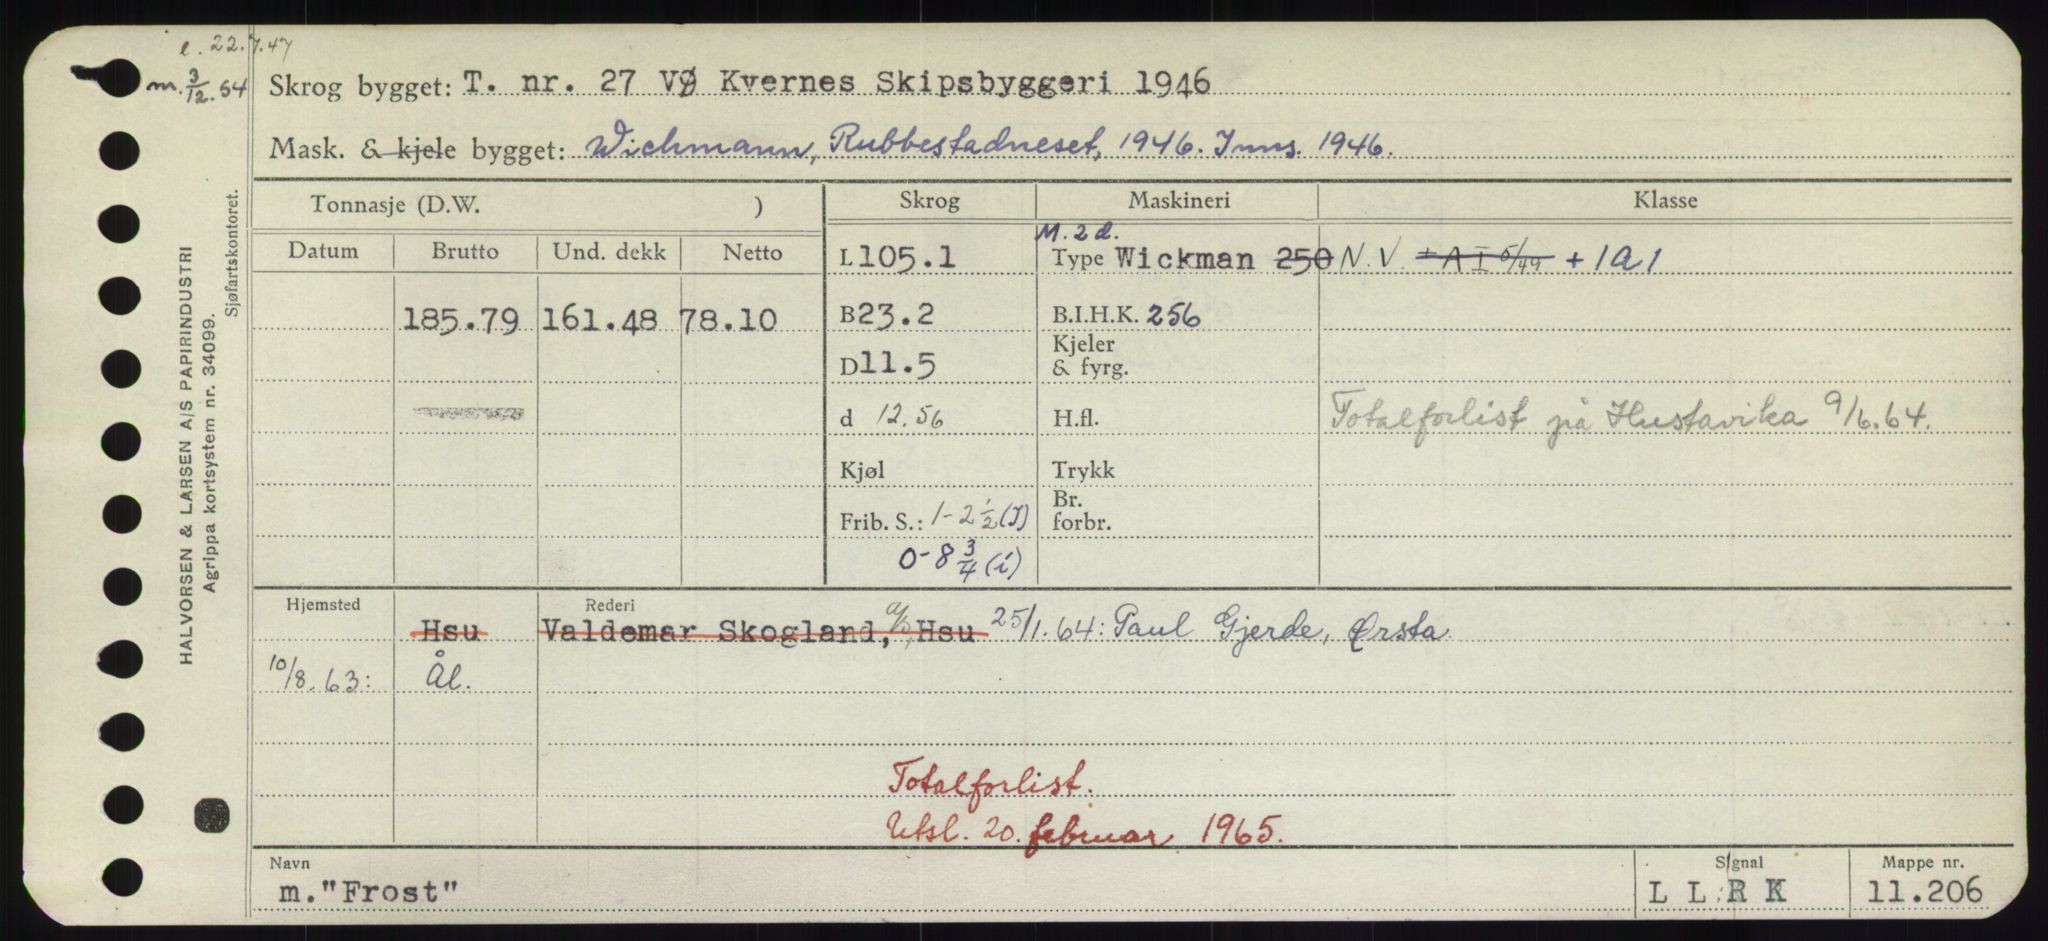 e. 22.7.47
m. 3/12. 54
Skrog bygget: T. nr. 27 VØ Kvernes Skipsbyggeri 1946
Mask. & kjele bygget: Wichmann, Rubbestadneset, 1946. Inns. 1946.
Tonnasje (D.W. )
Skrog Maskineri Klasse
Datum Brutto Und. dekk Netto
M. 2 d.
L 105.1 Type Wickman 250 N.V. ± A I 5/49 + 1A1
185.79 161.48 78.10 B 23.2 B.I.H.K. 256
Kjeler
D 11.5 & fyrg.
d 12.56 H.fl. Totalforlist på Hustavika 9/6.64.
Kjøl Trykk
Br.
Frib. S.: 1-2 1/2 (T) forbr.
0-8 3/4 (i)
Hjemsted Rederi
Hsu Valdemar Skogland, a/s, Hsu 25/1.64: Paul Gjerde, Ørsta
10/8.63: Ål.
Totalforlist.
Utsl. 20. februar 1965.
Navn Signal Mappe nr.
m. "Frost" L L R K 11.206
HALVORSEN & LARSEN A/S PAPIRINDUSTRI
Agrippa kortsystem nr. 34099.
Sjøfartskontoret.